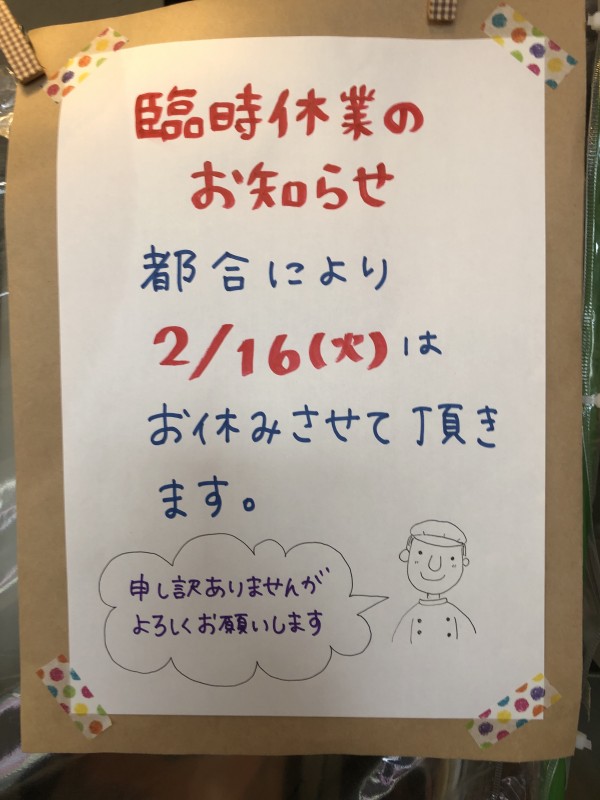 臨時休業の
お知らせ
都合により
2/16(火)は
お休みさせて頂き
ます。
申し訳ありませんが
よろしくお願いします